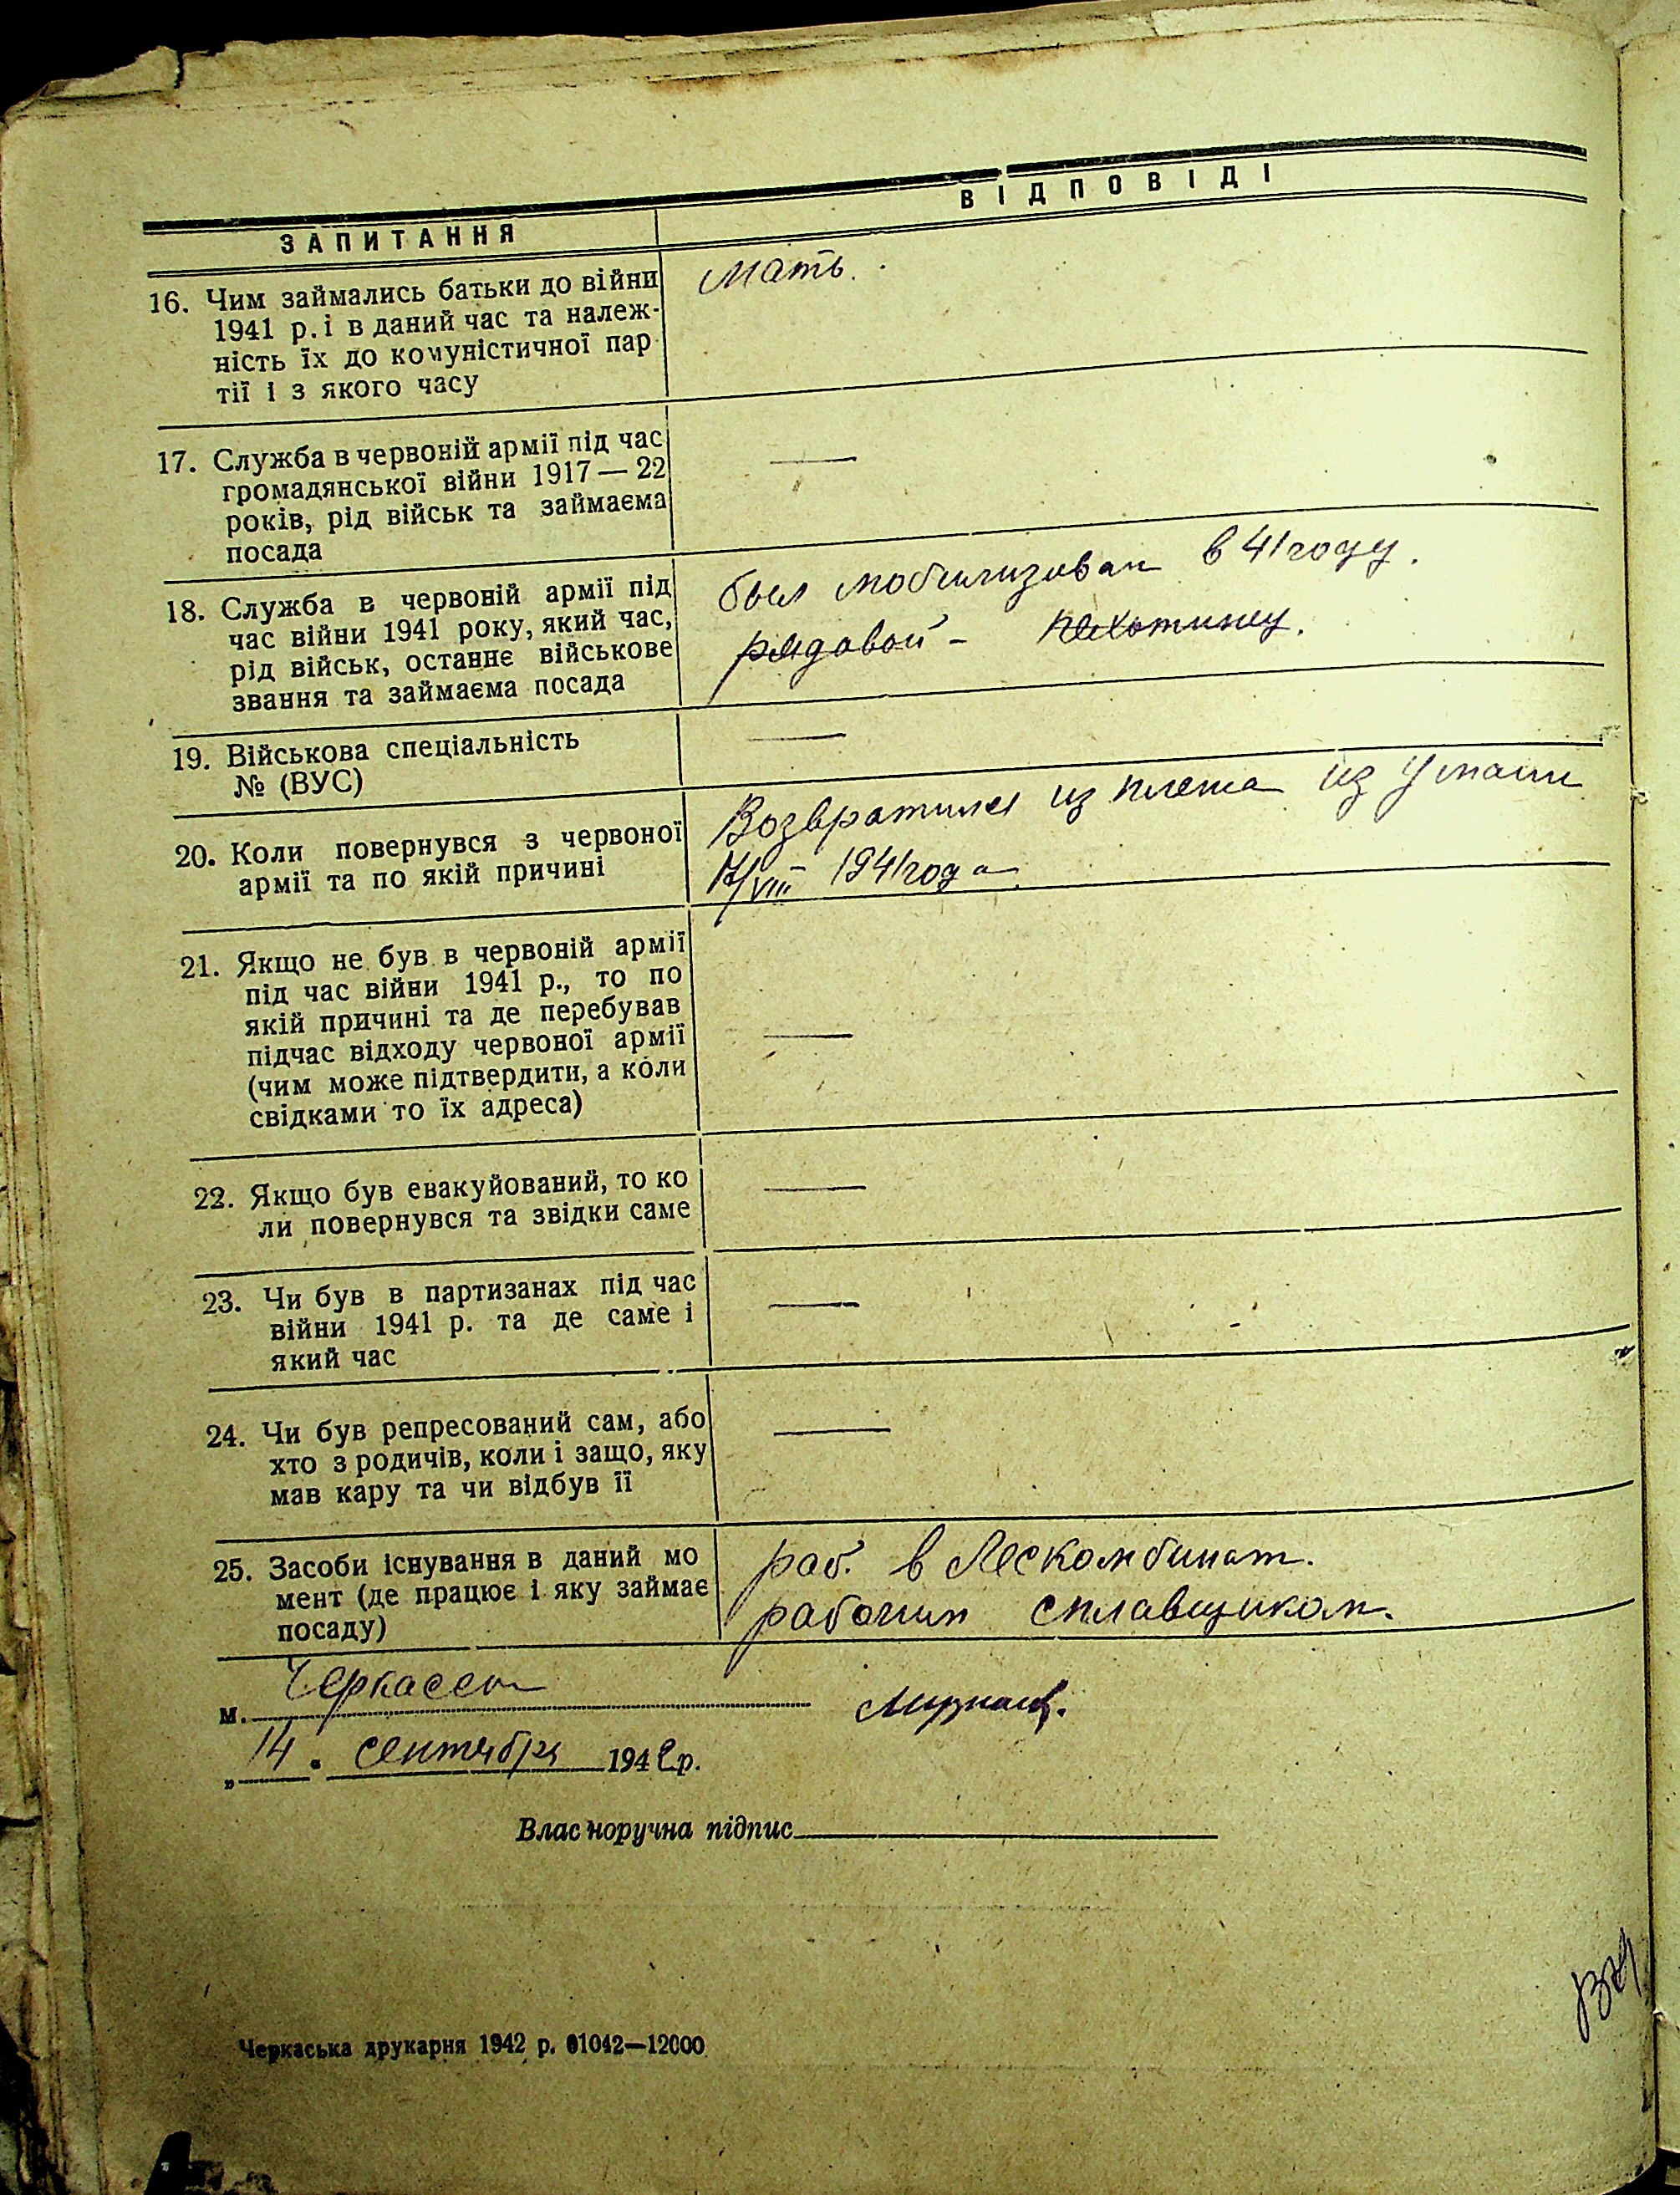 ЗАПИТАННЯ
ВІДПОВІДІ
16. Чим займались батьки до війни
1941 р. і в даний час та належ-
ність їх до комуністичної пар
тії і з якого часу
Мать.
17. Служба в червоній армії під час
громадянської війни 1917 — 22
років, рід військ та займаєма
посада
—
18. Служба в червоній армії під
час війни 1941 року, який час,
рід військ, останнє військове
звання та займаєма посада
был мобилизован в 41 году.
рядовой - пехотинец.
19. Військова спеціальність
№ (ВУС)
—
20. Коли повернувся з червоної
армії та по якій причині
Возвратился из плена из Умани
/VIII 1941 года
21. Якщо не був в червоній армії
під час війни 1941 р., то по
якій причині та де перебував
підчас відходу червоної армії
(чим може підтвердити, а коли
свідками то їх адреса)
—
22. Якщо був евакуйований, то ко
ли повернувся та звідки саме
—
23. Чи був в партизанах під час
війни 1941 р. та де саме і
який час
—
24. Чи був репресований сам, або
хто з родичів, коли і защо, яку
мав кару та чи відбув її
—
25. Засоби існування в даний мо
мент (де працює і яку займає
посаду)
раб. в Лескомбинат.
рабочим сплавщиком.
м. Черкассы
„14" сентября 1942 р.
Власноручна підпис
Черкаська друкарня 1942 р. 01042—12000